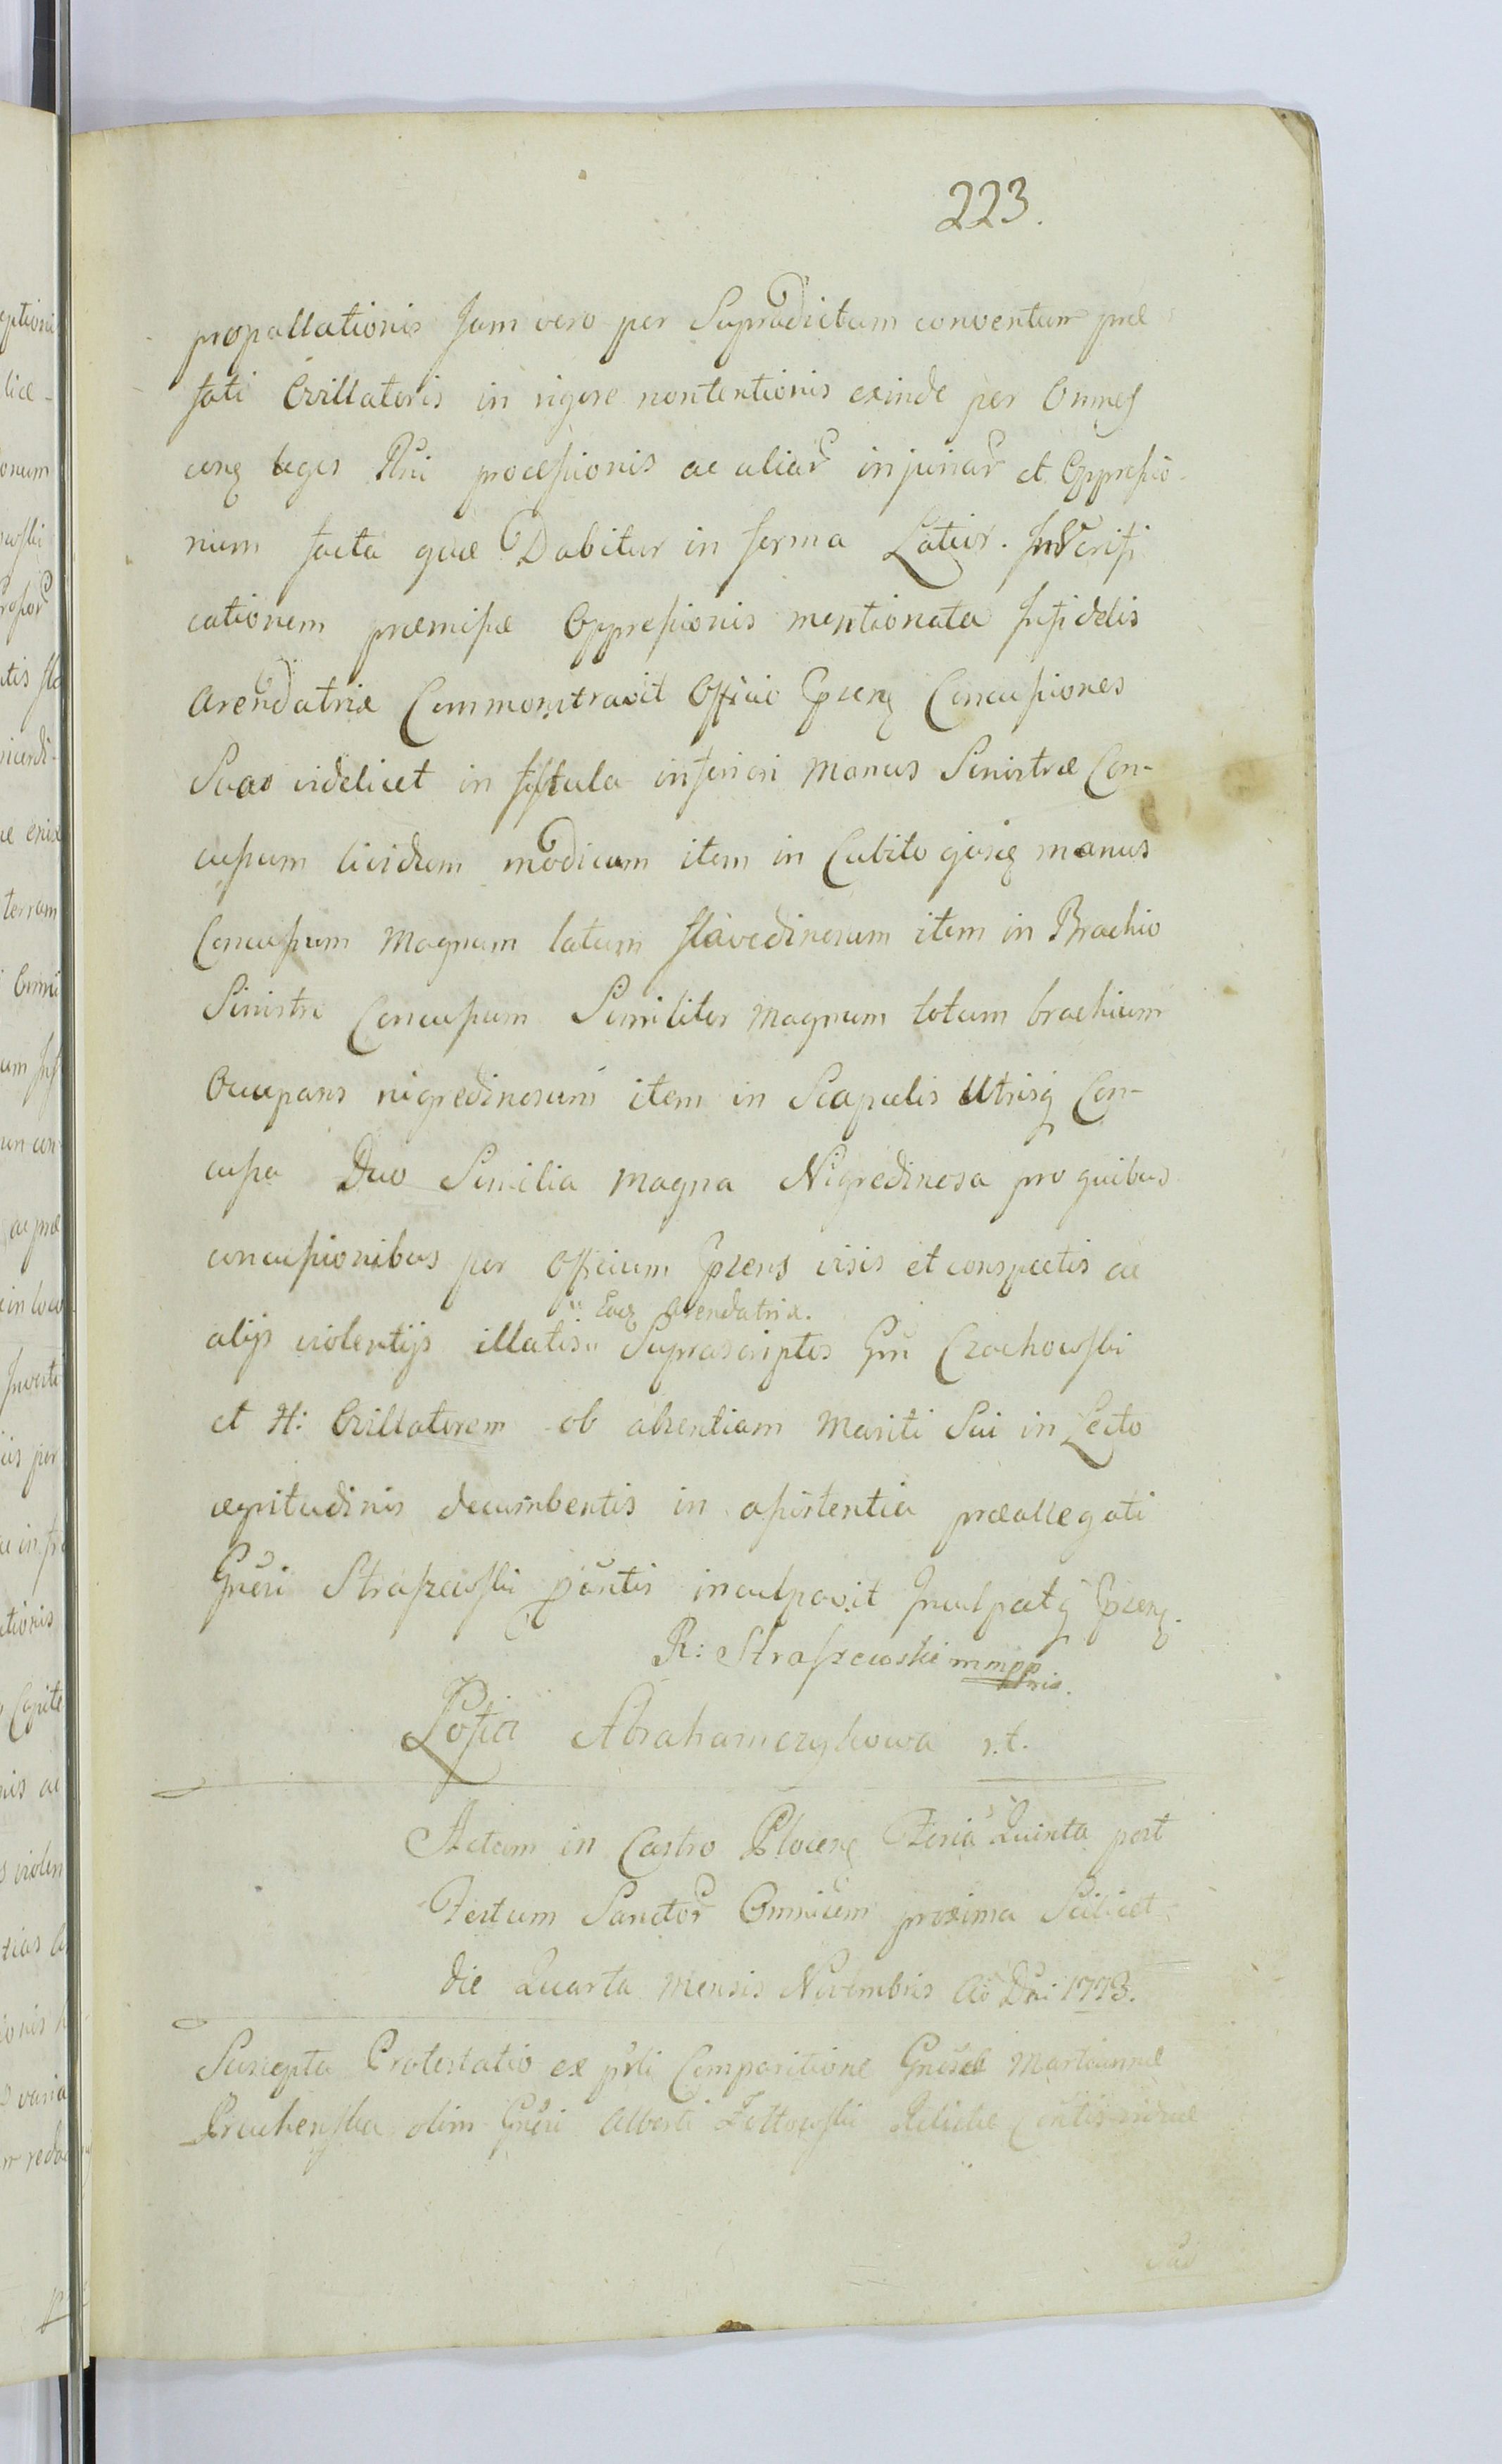 223.
propallationis Jam vero per Supradictum conventum præ
fati Ovillatoris in rigore nontentionis exinde per Omnes
cenꝫ leges Rñi processionis ac aliar̃ injuriar̃ et Oppressio-
num facta quæ Dabitur in forma Latior. In Verifi
cationem præmissæ Oppressionis mentionata Infidelis
Arendatrix Commonstravit Officio Ꝑsenꝫ Concussiones
Suas videlicet in fistula inferiori Manus Sinistræ Con-
cussum lividum modicum item in Cubito ejusꝫ manus
Concussum Magnum latum flavedinosum item in Brachio
Sinistro Concussum Similiter Magnum totum brachium
Occupans nigredinosum item in Scapulis Utrisq Con-
cussa Duo Similia Magna Nigredinosa pro quibus
concussionibus per Officium Ꝑsens visis et conspectis ac
" Eadꝫ Arendatrix.
alijs violentijs illatis " Suprascriptos Gm̃ Czachowski
et H: Ovillatorem ob absentiam Mariti Sui in Lecto
ægritudinis decumbentis in assistentia præallegati
Gnẽri Straszewski p̃ñtis inculpavit Inculpatq Ꝑsenꝫ.
R: Straszewski mmpp
pria.
Zofia Abrahamczykowa r.t.
Actum in Castro Plocenꝫ Feria Quinta post
Festum Sanctor̃ Omnium proxima Scilicet
die Quarta Mensis Novembris Ao Dñi 1773.
Suscepta Protestatio ex p̃rli Comparitione Gnesæ Mariannæ
olim Gnẽri Alberti Relictæ viduæ